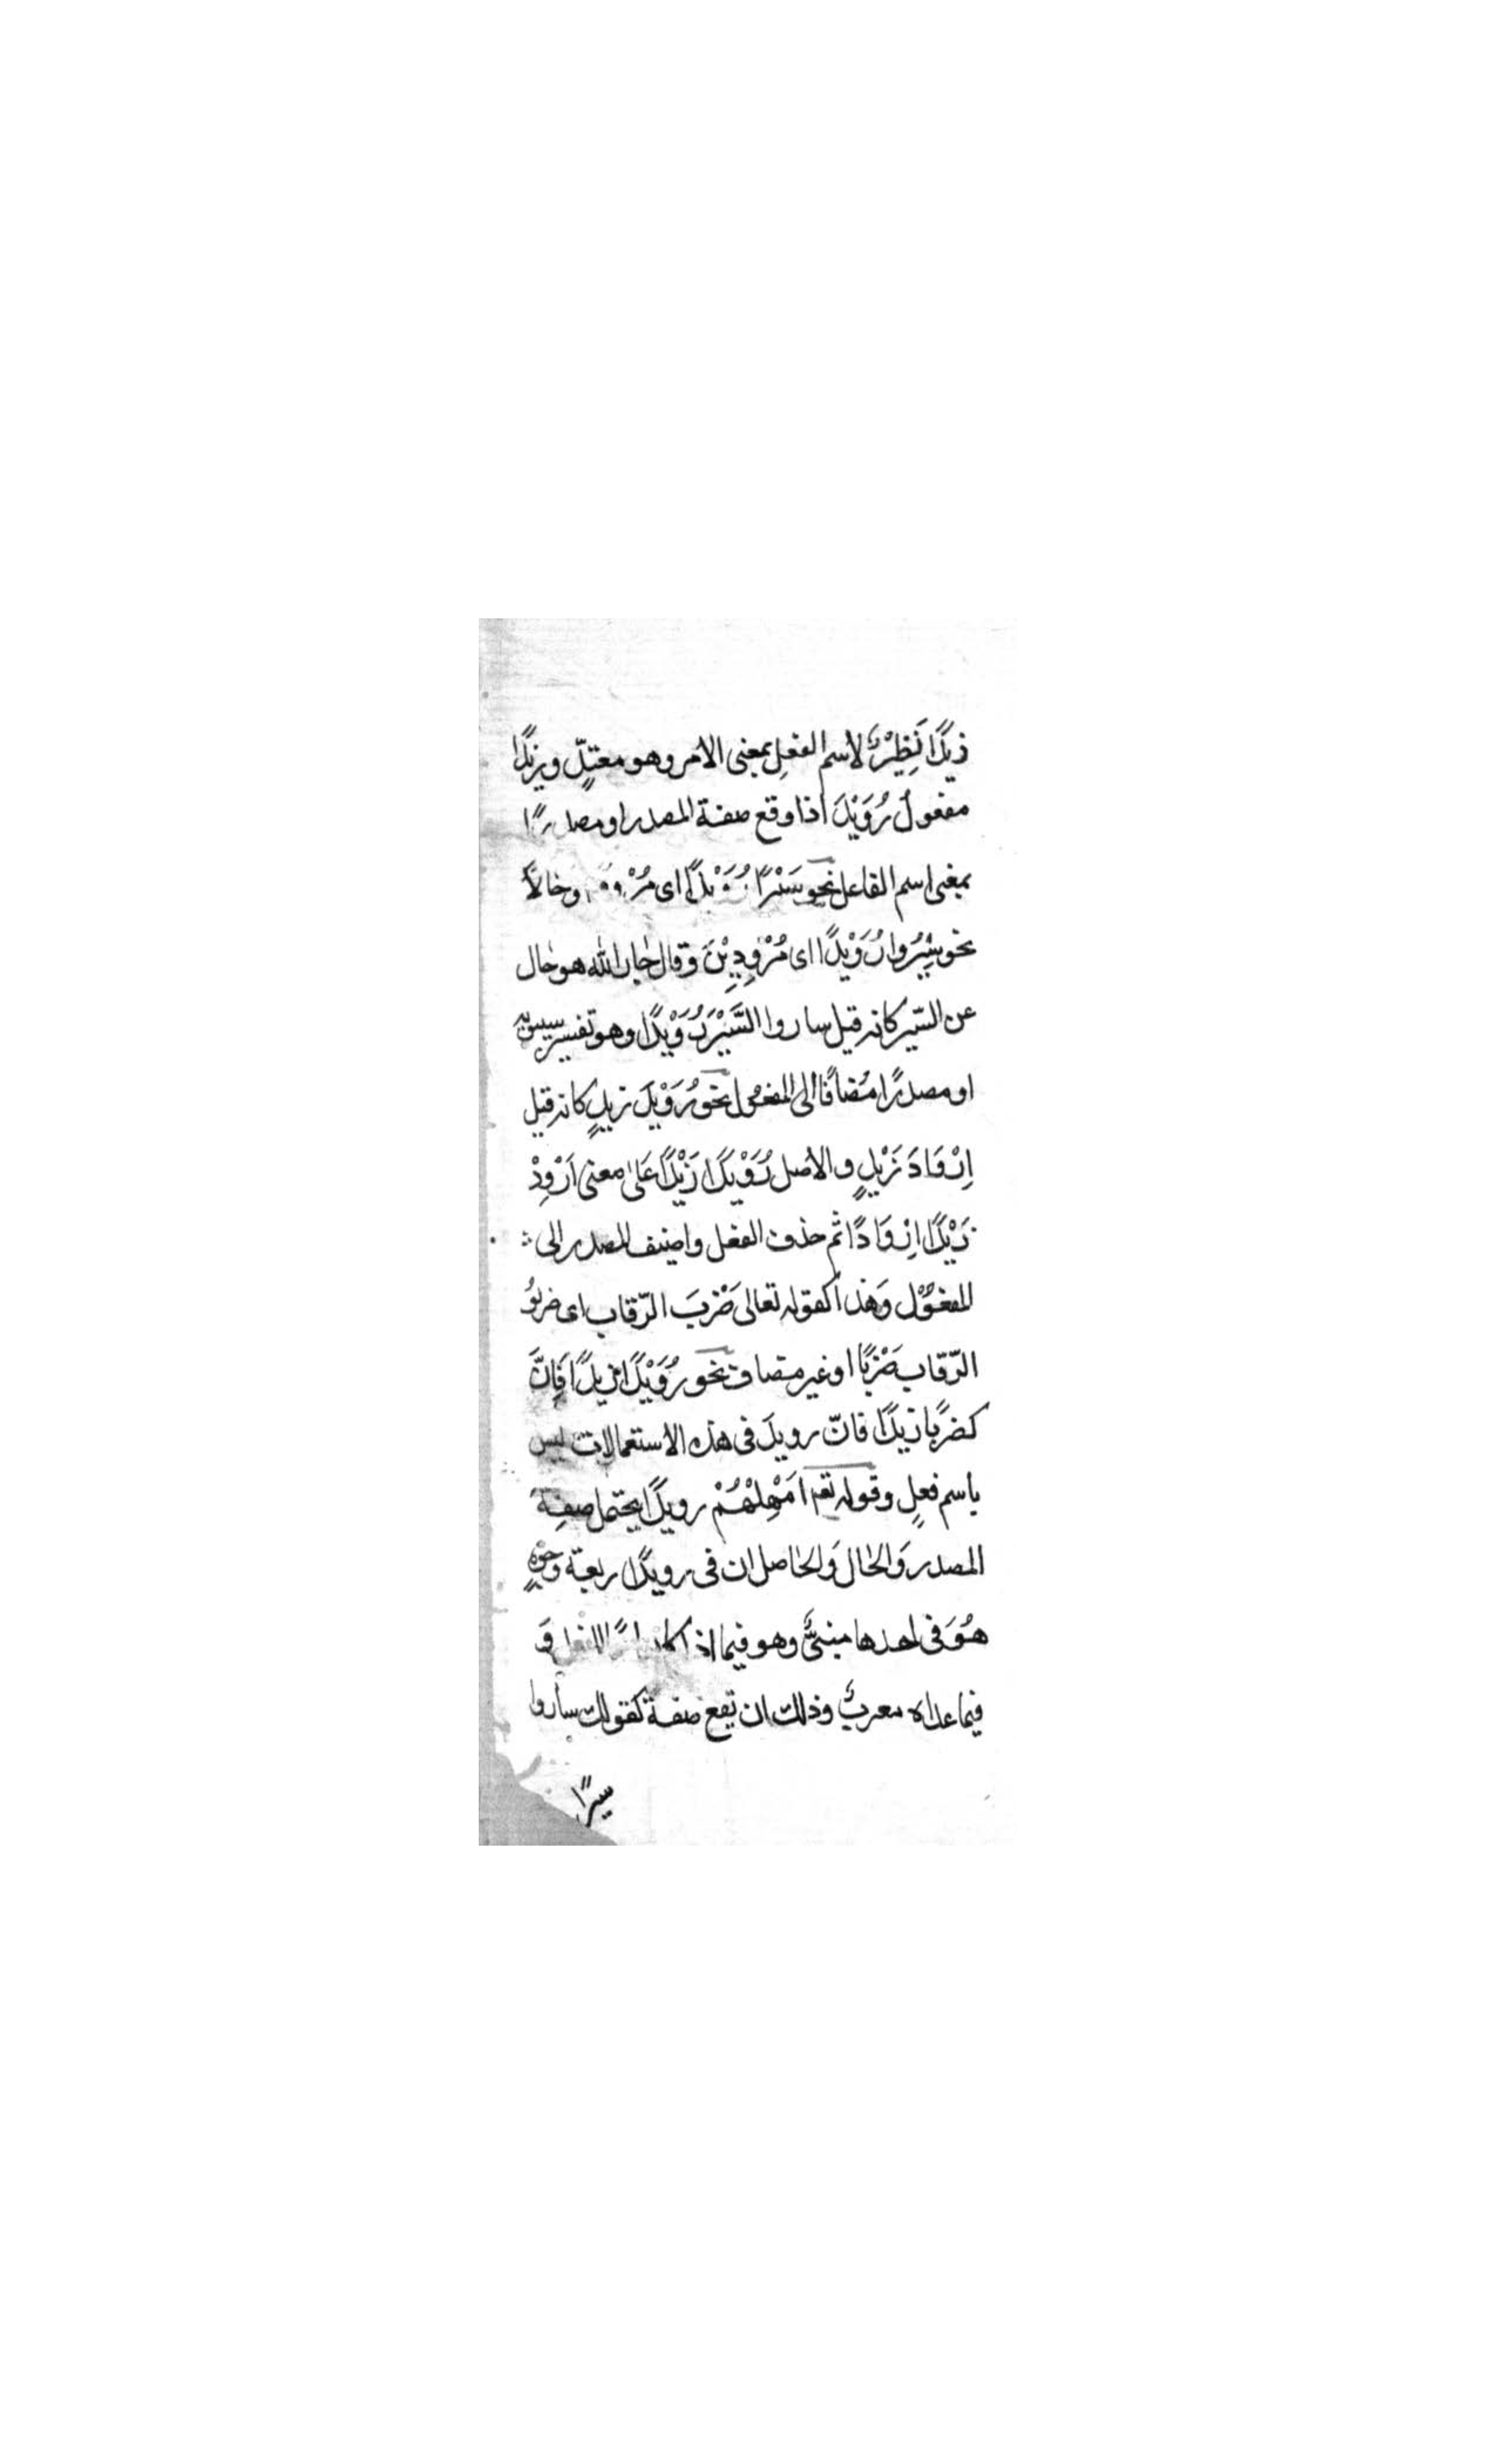 زيدًا نَظِيْرٌ لاسم الفعلِ بمعنى الامر وهو معتدٍّ وزيدًا
مفعولُ رُوَيْدَ اذا وقع صفة المصدر او مصدرًا
بمعنى اسم الفاعل نحو سَيْرًا رُوَيْدًا اى وحالاً
نحو سِيْرُوا رُوَيْدًا اى مُرْوِدِيْنَ وقال جار الله هو حال
عن السّير كانه قيل ساروا السَّيْرَ رُوَيْدًا وهو تفسير سيبويه
او مصدرًا مُضافًا الى المفعول نحو رُوَيْدَ زيدٍ كانه قيل
اِرْوَادَ زَيْدٍ والاصل رُوَيْدًا زَيْدًا عَلى معنى اَرْوِدْ
زَيْدًا اِرْوَادًا ثم حذف الفعل واضيف المصدر الى
المفعُوْل وَهذا كقوله تعالى ضَرْبَ الرّقاب اى ضربوُ
الرّقاب ضَرْبًا او غير مضاف نحو رُوَيْدًا زيدًا فَاِنَّ
كضربًا زيدًا فانّ رويدَ فى هذه الاستعمالات ليس
باسم فعلٍ وقوله تعم اَمْهِلْهُمْ رويدًا يحتمل صفِة
المصدر وَالحال وَالحاصل ان فى رويدًا ربعة وجوْهٍ
هُوَ فى احدها مبنىٌّ وهو فيما اذا كان للفعل وَ
فيما عداه معربٌ وذلك ان يقع صفة كقولك ساروا
سيرًا